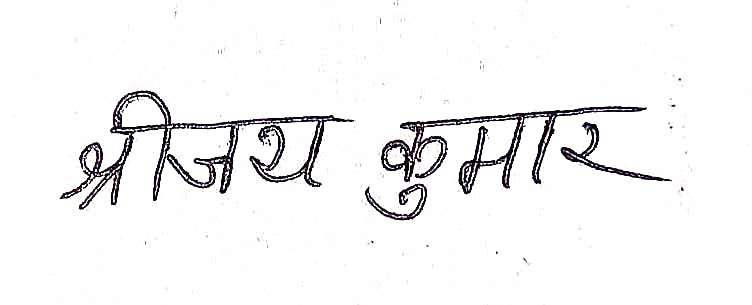 श्रीजय कुमार